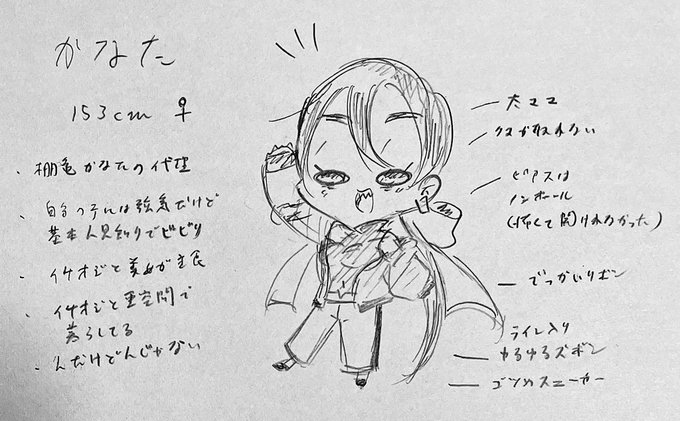 かなた
153cm ♀
・棚亀かなたの代理
・自分の子には強気だけど
基本人見知りでビビり
・イケオジと美女が主食
・イケオジと亜空間で
暮らしてる
・んだけどんじゃない
クマが取れない
ピアスは
ノンホール
(怖くて開けれなかった)
でっかいリボン
ライン入り
ゆるゆるズボン
ゴツめスニーカー